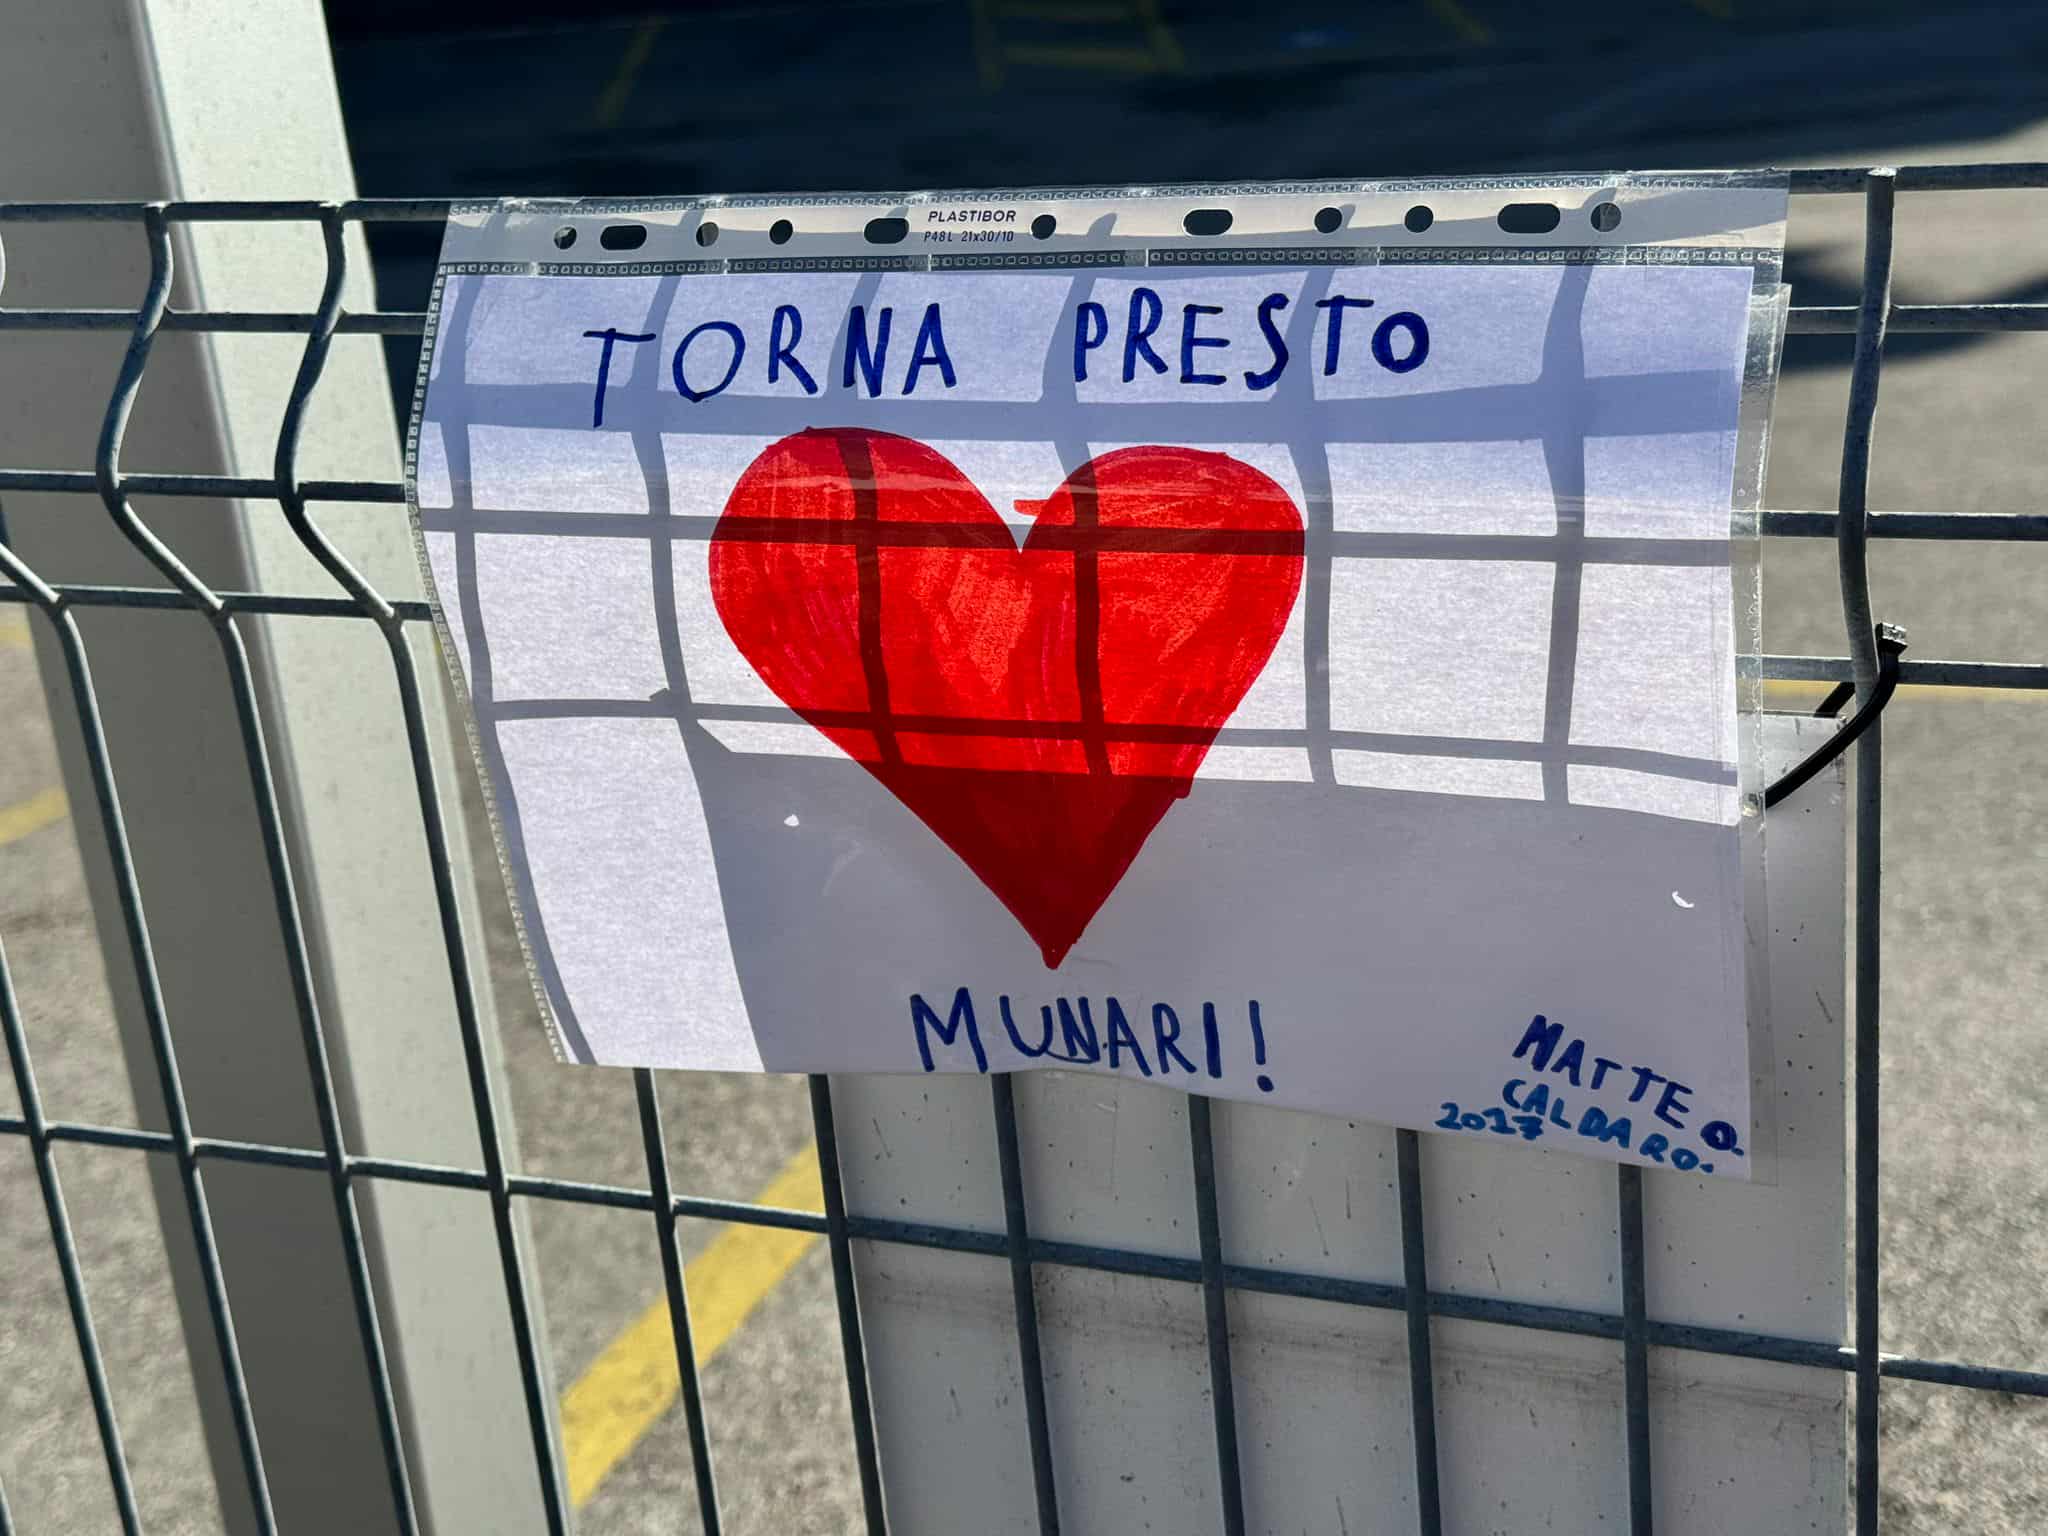 PLASTIBOR
P48L 21x30/10
TORNA PRESTO
MUNARI!
MATTEO
CALDARO.
2017